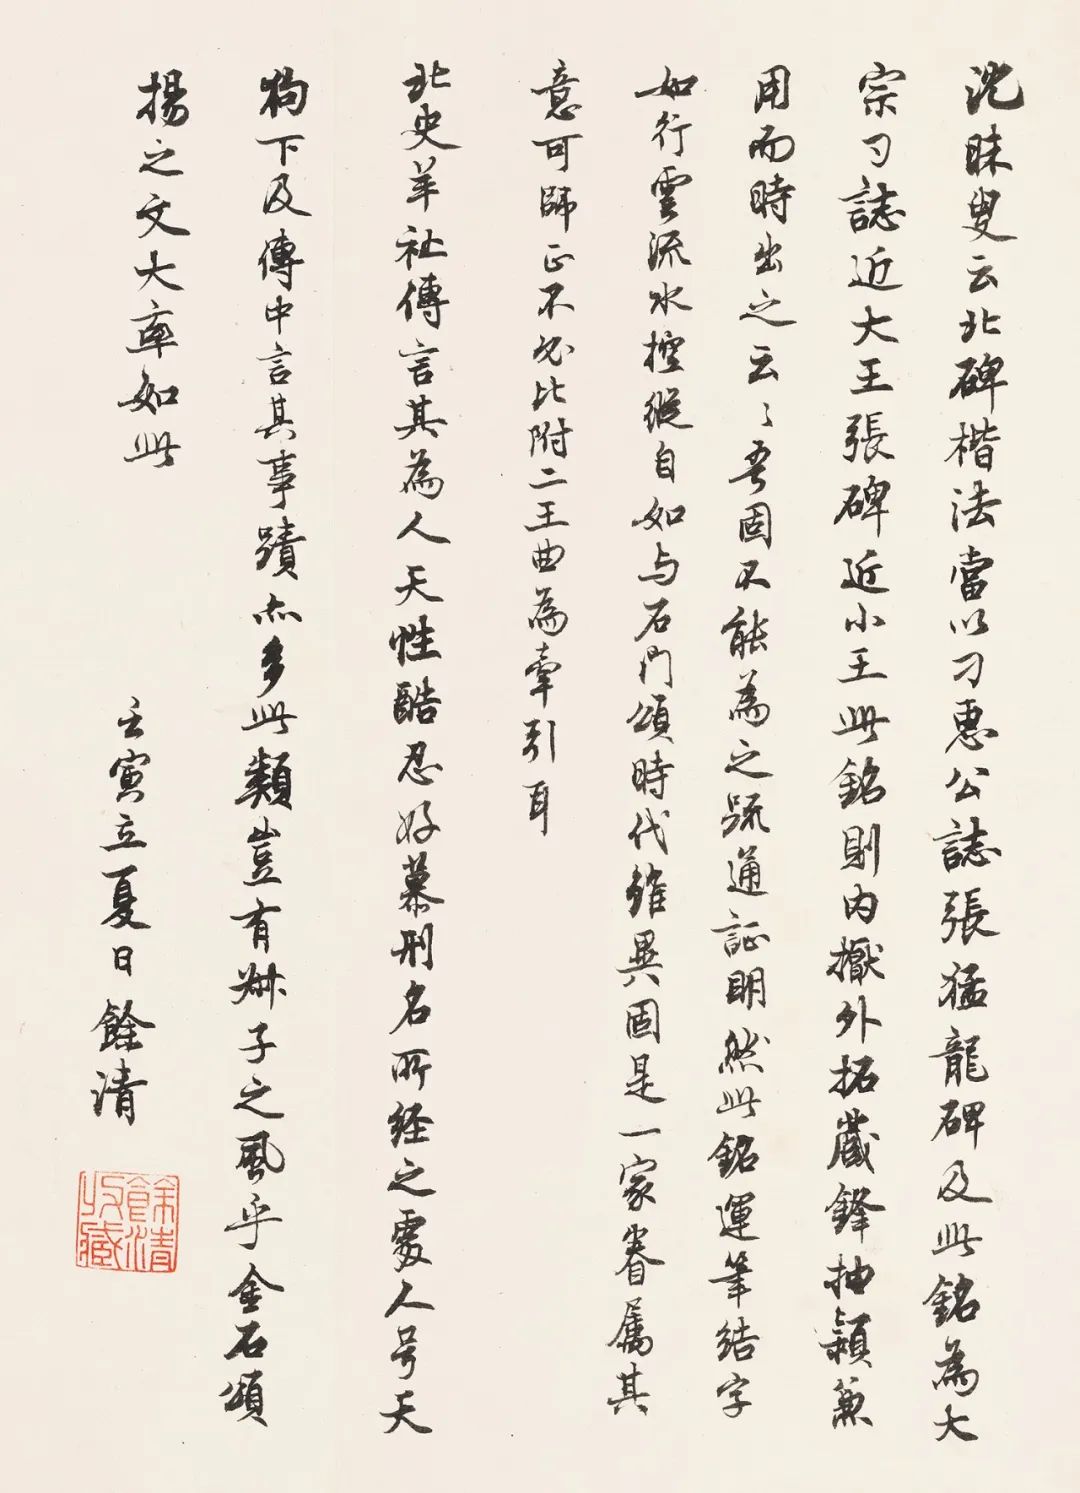 沈昧叟云北碑楷法當以刁惠公誌張猛龍碑及此銘為大
宗刁誌近大王張碑近小王此銘則內擫外拓藏鋒抽穎兼
用而時出之云〻吾固不能為之疏通証明然此銘運筆結字
如行雲流水控縱自如与石門頌時代雖異固是一家眷屬其
意可師正不必比附二王曲為牽引耳
北史羊祉傳言其為人天性酷忍好慕刑名所経之處人号天
狗下及傳中言其事蹟亦多此類豈有淋子之風乎金石頌
揚之文大率如此
壬寅立夏日餘清
餘清
收藏